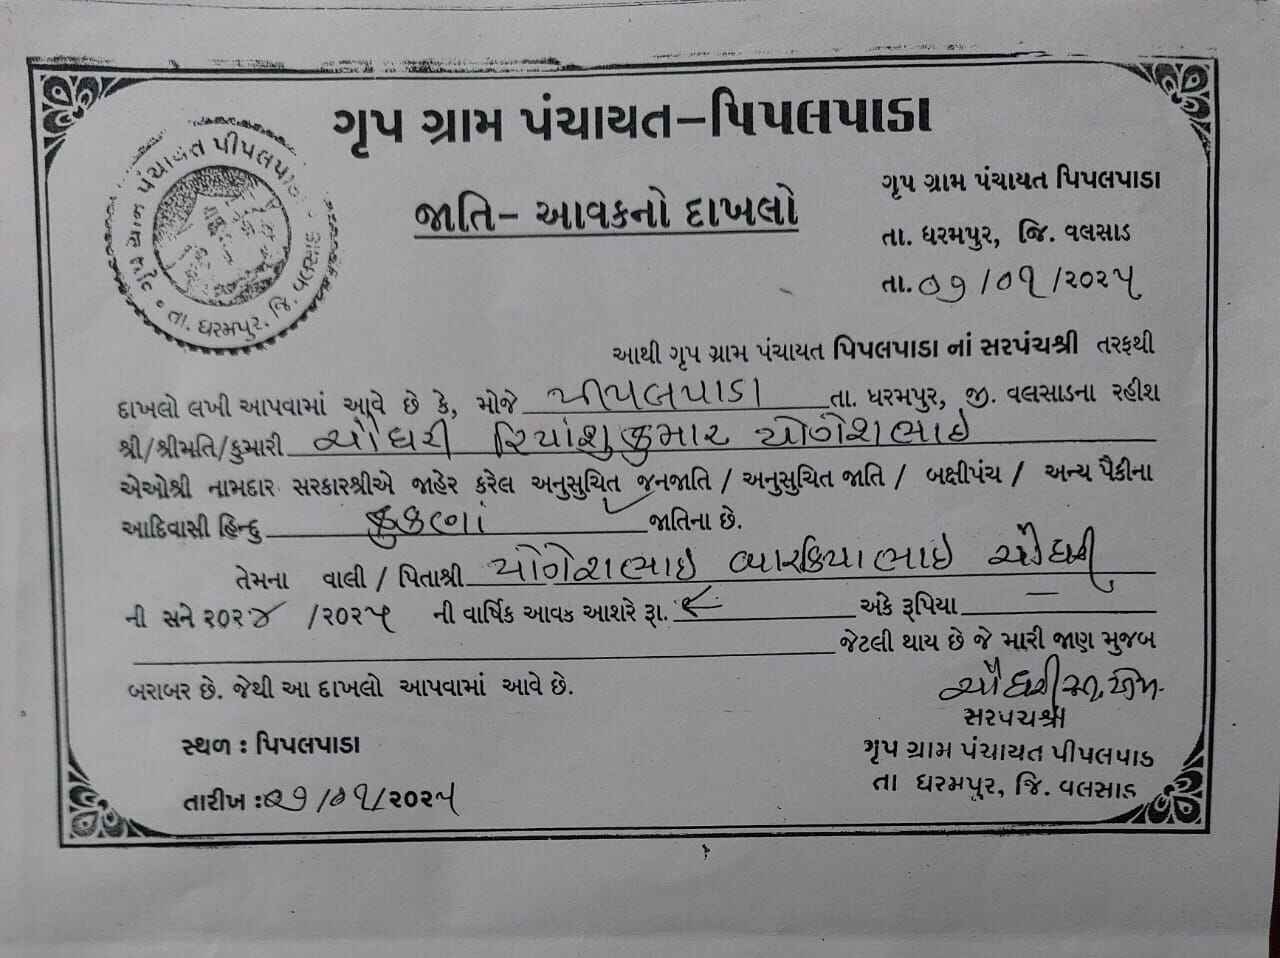 ગૃપ ગ્રામ પંચાયત-પિપલપાડા
ગૃપ ગ્રામ પંચાયત પીપલપાડા
તા. ધરમપુર, જિ. વલસાડ
જાતિ- આવકનો દાખલો
ગૃપ ગ્રામ પંચાયત પિપલપાડા
તા. ધરમપુર, જિ. વલસાડ
તા. ૦૭/૦૧/૨૦૨૫
આથી ગૃપ ગ્રામ પંચાયત પિપલપાડા નાં સરપંચશ્રી તરફથી
દાખલો લખી આપવામાં આવે છે કે, મોજે પીપલપાડા તા. ધરમપુર, જી. વલસાડના રહીશ
શ્રી/શ્રીમતિ/કુમારી ચૌધરી રિયાંશુકુમાર યોગેશભાઇ
એઓશ્રી નામદાર સરકારશ્રીએ જાહેર કરેલ અનુસુચિત જનજાતિ / અનુસુચિત જાતિ / બક્ષીપંચ / અન્ય પૈકીના
આદિવાસી હિન્દુ કુકણાં જાતિના છે.
તેમના વાલી / પિતાશ્રી યોગેશભાઇ બ્યારકિયાભાઇ ચૌધરી
ની સને ૨૦૨૪ /૨૦૨૫ ની વાર્ષિક આવક આશરે રૂા. અંકે રૂપિયા
જેટલી થાય છે જે મારી જાણ મુજબ
બરાબર છે. જેથી આ દાખલો આપવામાં આવે છે.
ચૌધરી
સરપચશ્રી
સ્થળ : પિપલપાડા
ગૃપ ગ્રામ પંચાયત પીપલપાડ
તા ધરમપુર, જિ. વલસાડ
તારીખ : ૦૭/૦૧/૨૦૨૫